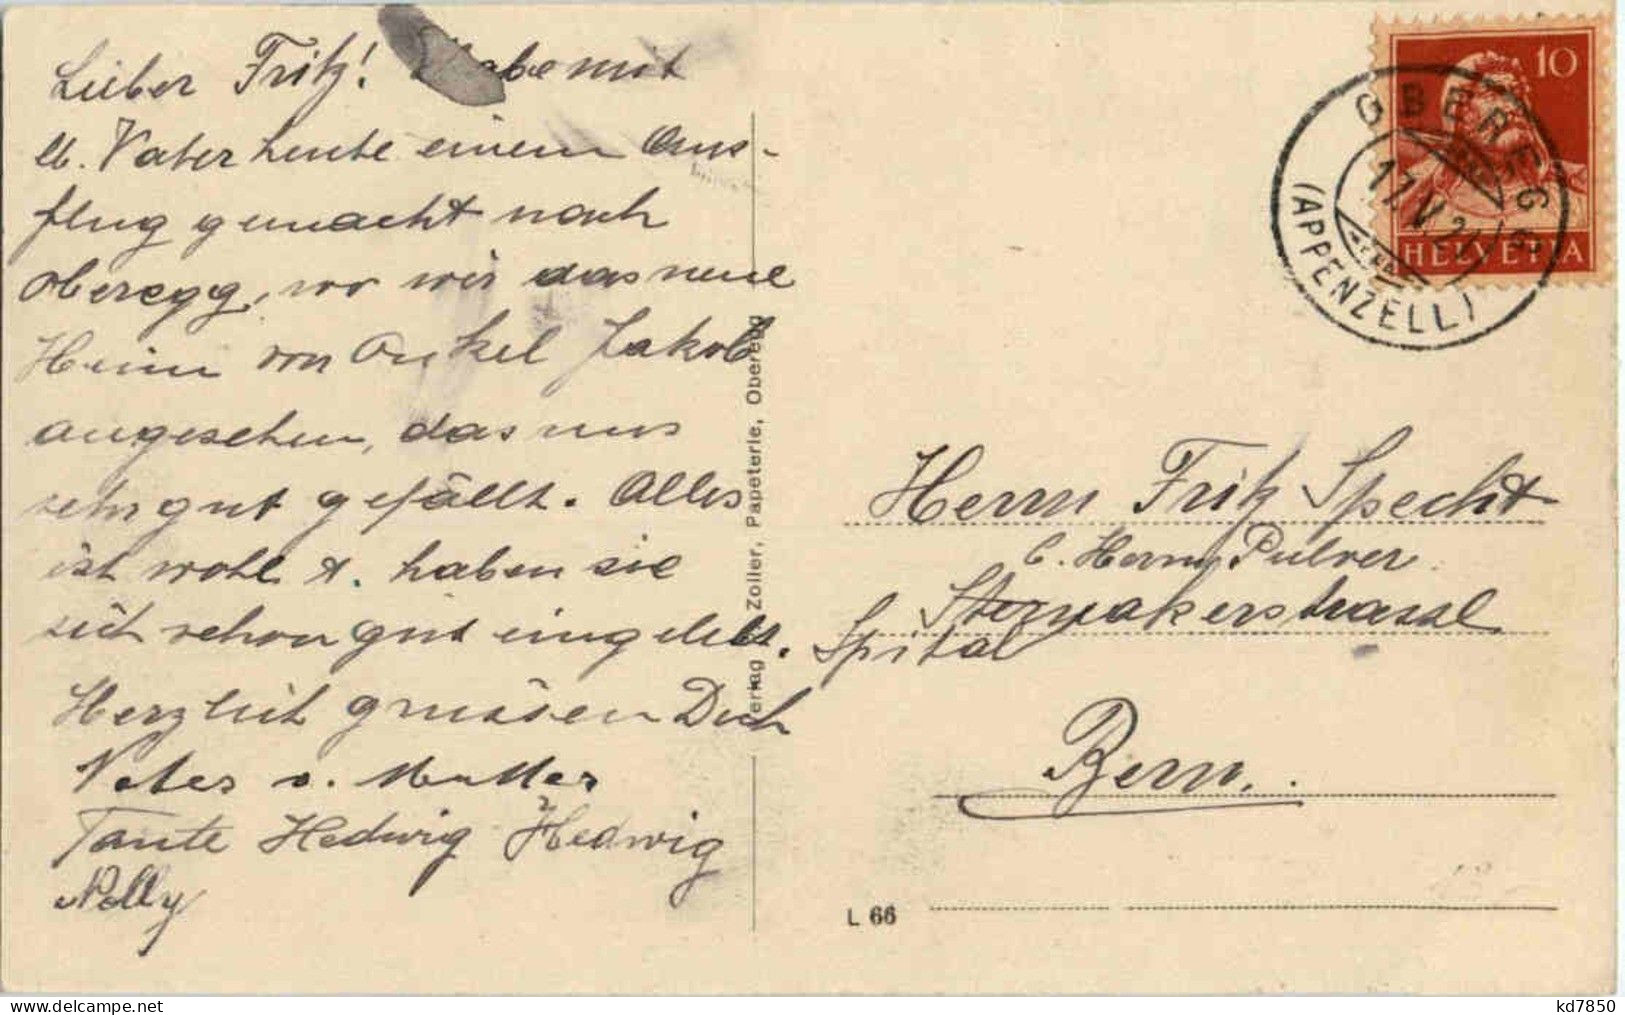 Lieber Fritz! Habe mit
lb. Vater heute einen Aus-
flug gemacht nach
Oberegg, wo wir das neue
Heim von Onkel Jakob
angesehen, das uns
sehr gut gefällt. Alles
ist wohl &. haben sie
sich schon gut eingelebt.
Herzlich grüssen Dich
Vater u. Mutter
Tante Hedwig Hedwig
Nelly
Verlag Zoller, Papeterie, Oberegg
10
HELVETIA
OBEREGG
17.V.2
(APPENZELL)
Herrn Fritz Specht
b. Herrn Pulver
Spital
Bern.
L 66
kd7850